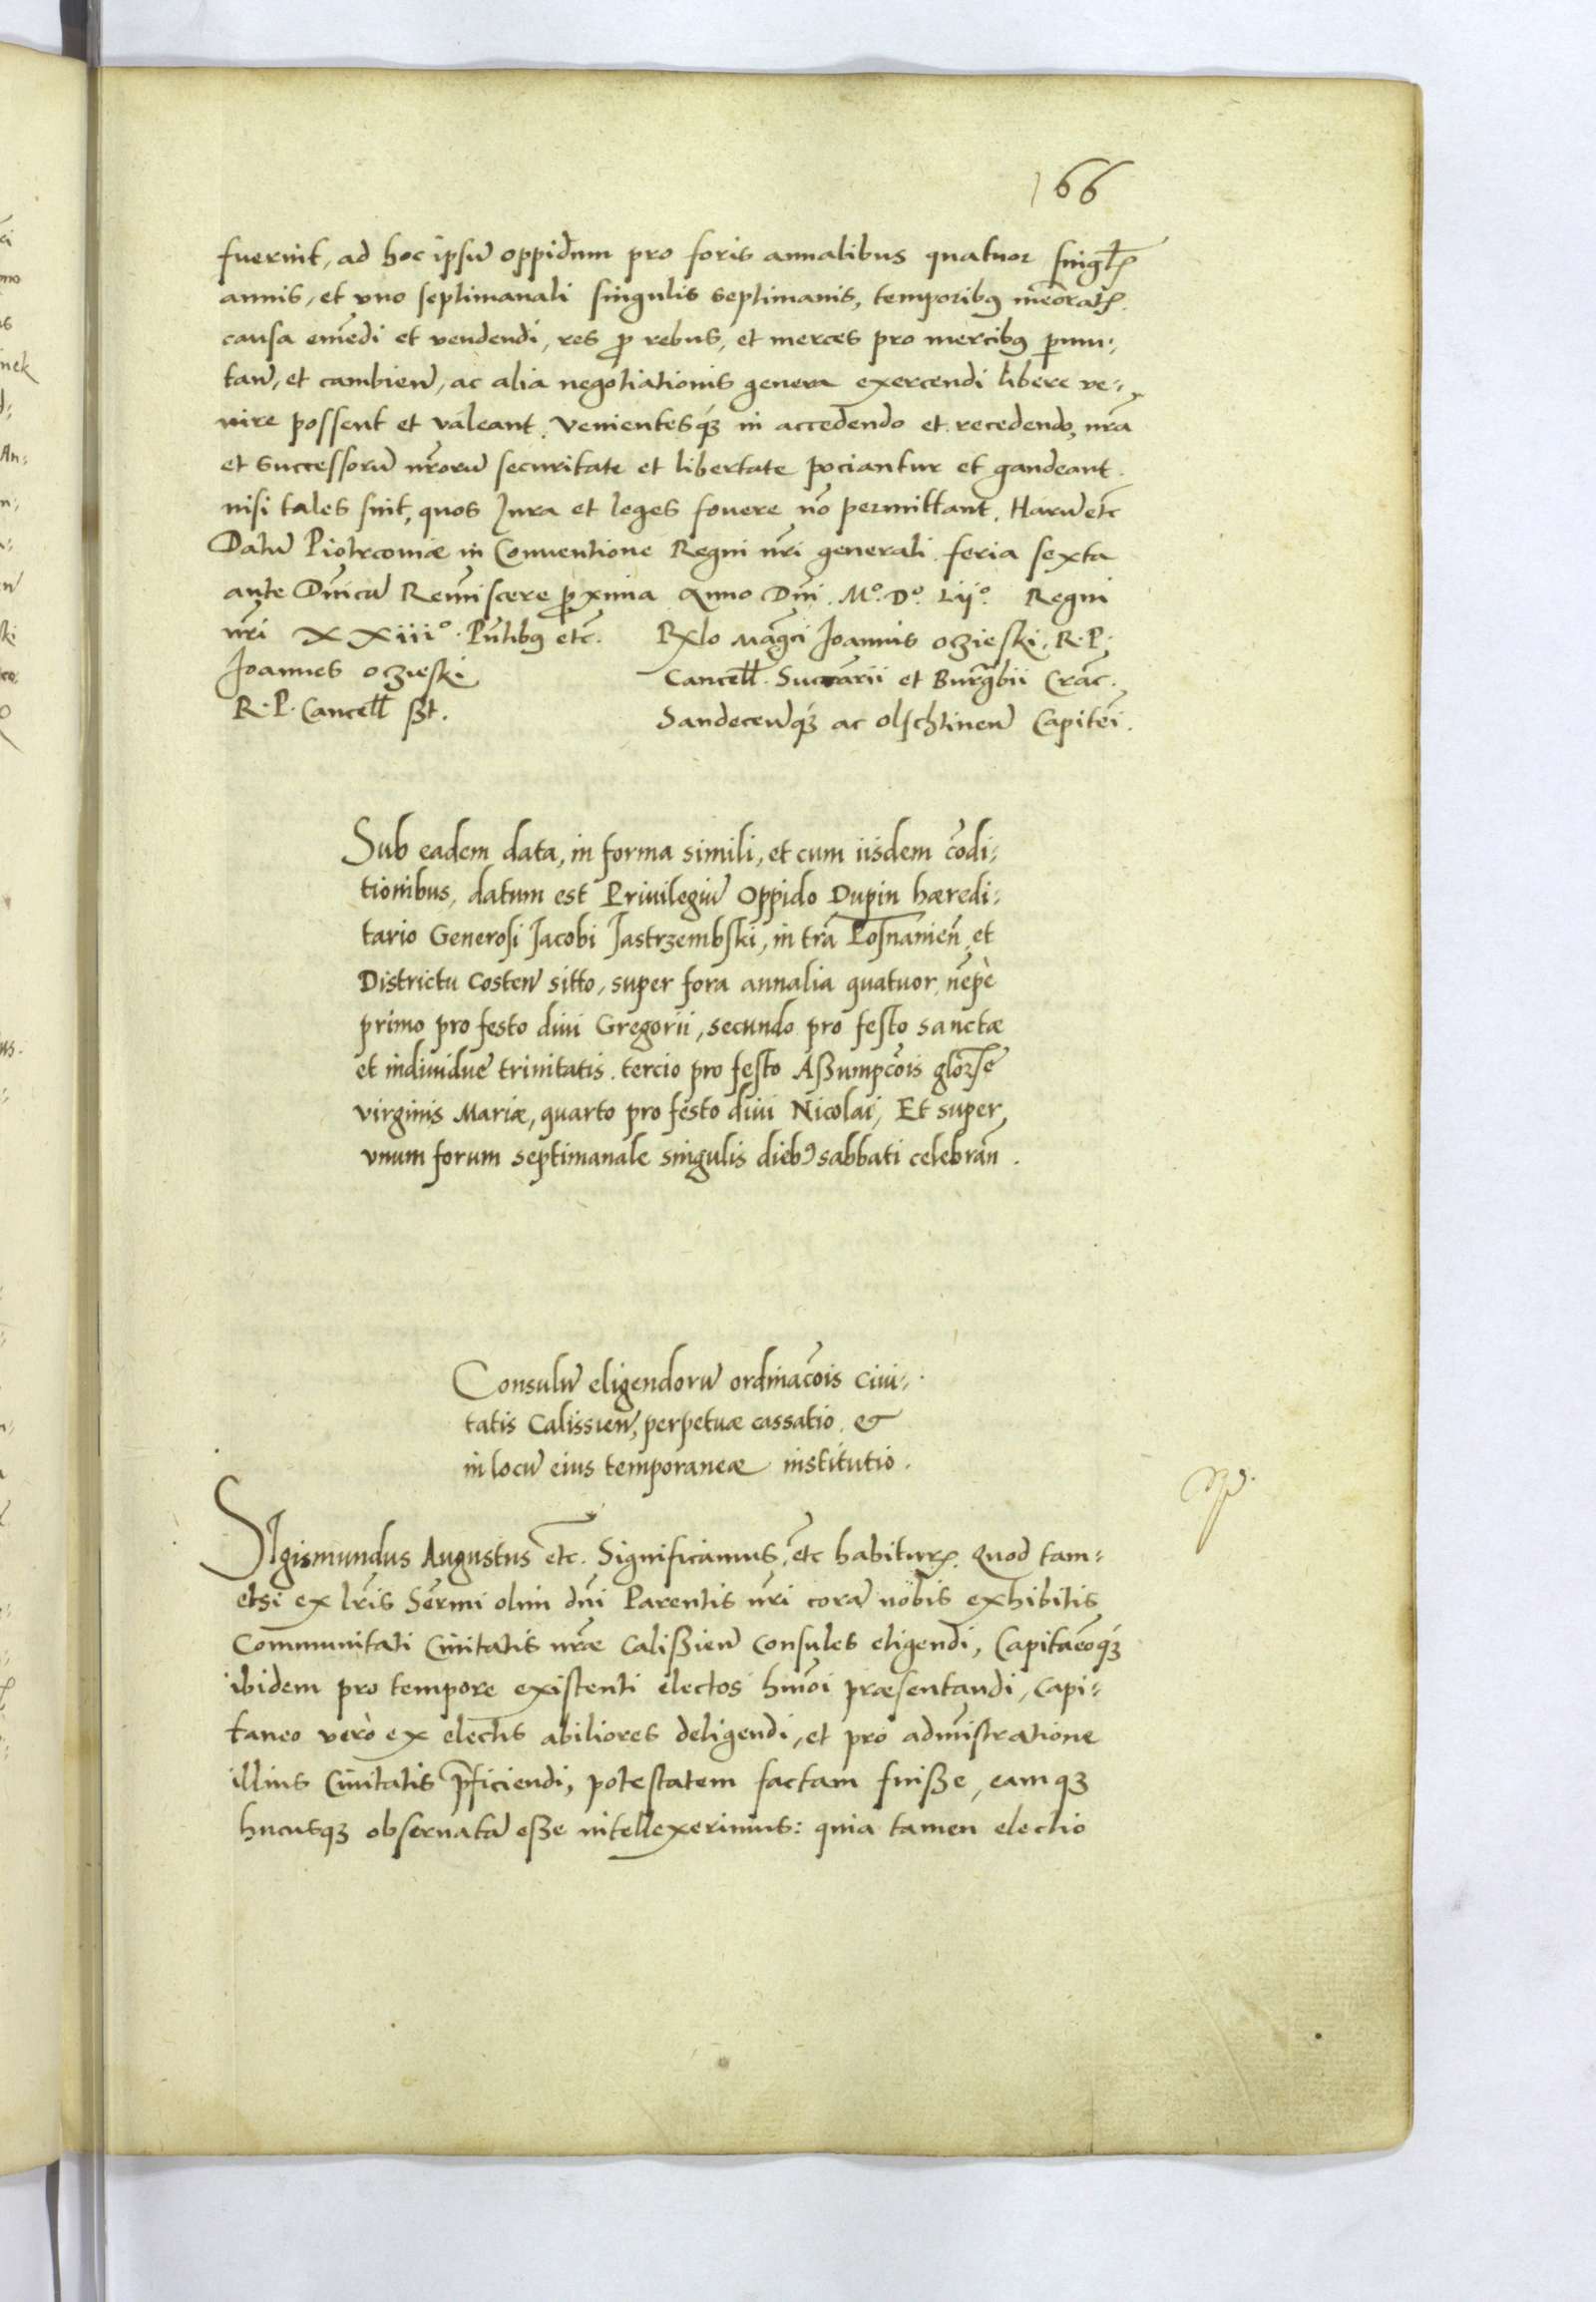 166
fuerint, ad hoc ipsũ oppidum pro foris annalibus quatuor singlꝝ
annis, et vno septimanali singulis septimanis, temporibꝰ meoratꝝ.
causa emẽdi et vendendi, res ꝓ rebus, et merces pro mercibꝰ ꝑmu-
tañ, et cambień, ac alia negotiationis genera exercendi libere ve-
nire possent et valeant. Venientesqꝫ in accedendo et recedendo, nr̃a
et Successorũ nr̃orũ securitate et libertate pociantur et gaudeant.
nisi tales sint, quos Jura et leges fouere nõ permittant. Harũ etc
Datũ Piotrcouiæ in Conuentione Regni nr̃i generali feria sexta
ante Dñicũ Reminiscere ꝓxima Anno Dñi. Mº. Dº. Lijº. Regni
nr̃i XXiiiº. Pñtibꝰ etc. Rlo Magci Joannis oczieski. R. P.
Joannes oczieski Cancell. Succarii et Burgbii Crac.
R. P. Cancell ßt. Sandeceńqꝫ ac olschtineń Capitei.
Sub eadem data, in forma simili, et cum iisdem cõdi-
tionibus, datum est Priuilegiũ Oppido Dupin hæredi-
tario Generosi Jacobi Jastrzembski, in tr̃a Posnanień, et
Districtu Costeń sitto, super fora annalia quatuor, nẽpè
primo pro festo diui Gregorii, secundo pro festo sanctæ
et individuę trinitatis. tercio pro festo Aßumpcõis glorse
virginis Mariæ, quarto pro festo diui Nicolai, Et super
vnum forum septimanale singulis diebꝰ sabbati celebrañ.
Consulũ eligendorũ ordinacõis Ciui-
tatis Calissień, perpetuæ cassatio, &
in locũ eius temporaneæ institutio.
SIgismundus Augustus etc. Significamus, etc habiturꝝ. Quod tam-
etsi ex lr̃is Sermi olim dñi Parentis nr̃i corã nobis exhibitis
Communitati Ciuitatis nr̃æ Calißień Consules eligendi, Capitaeoqꝫ
ibidem pro tempore existenti electos hmõi præsentandi, Capi-
taneo verò ex electis abiliores deligendi, et pro admĩstratione
illius Ciuitatis p̃ficiendi, potestatem factam fuiße, eamqꝫ
hucusqꝫ obseruatã eße intellexerimus: quia tamen electio